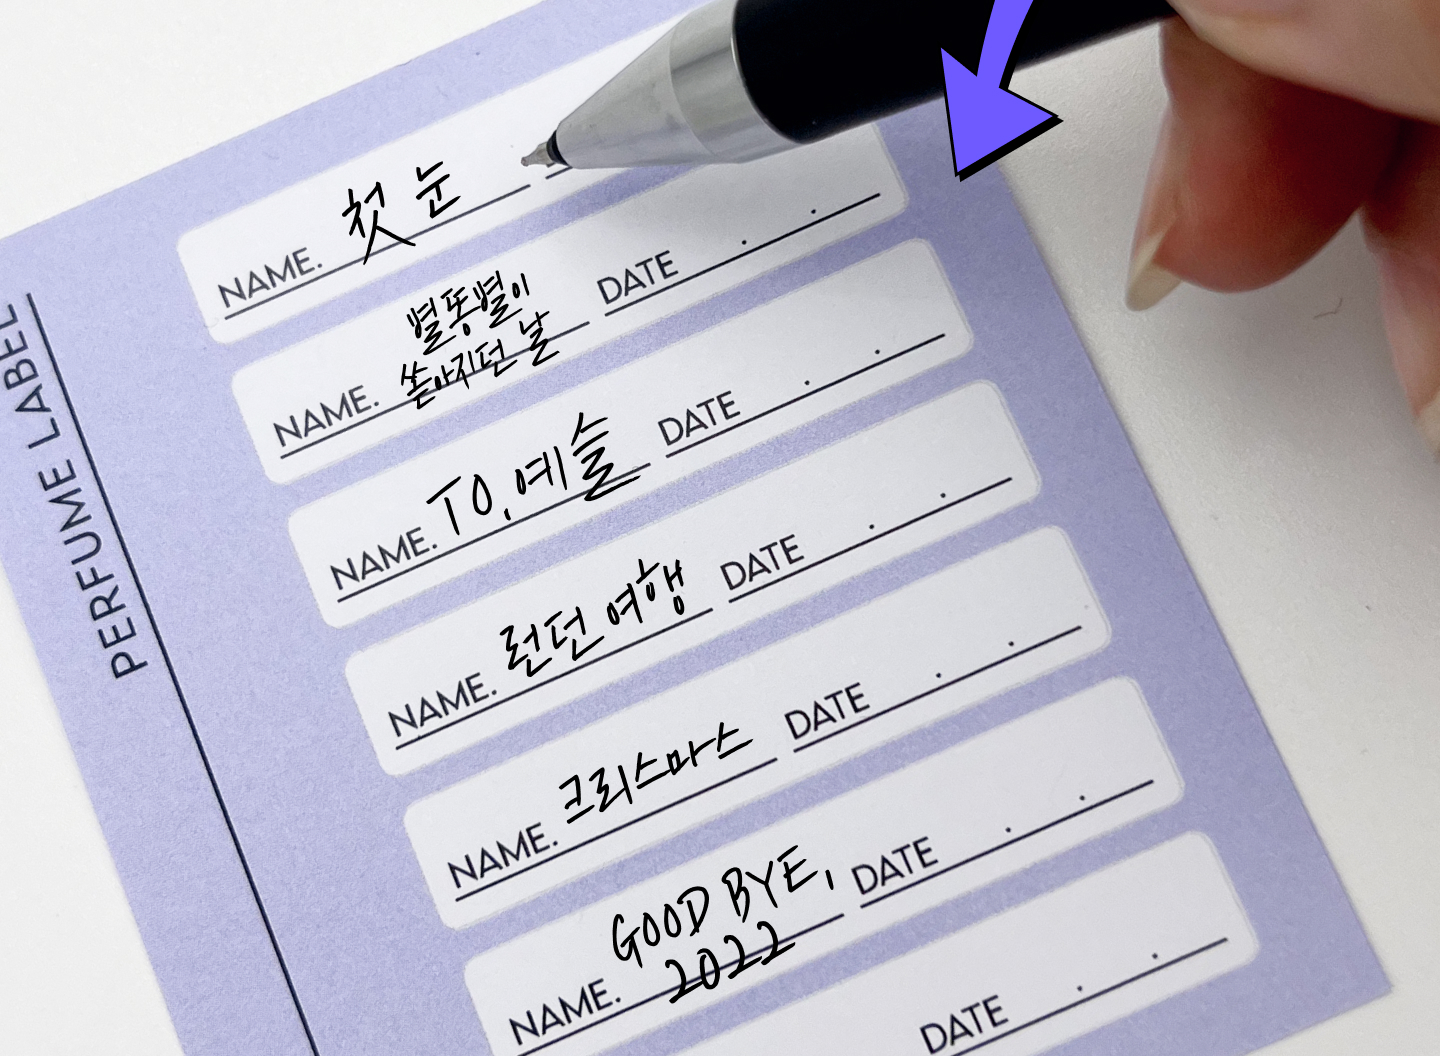 PERFUME LABEL
NAME. 첫 눈
NAME. 별똥별이
쏟아지던 날
DATE . .
NAME. TO. 예슬
DATE . .
NAME. 런던 여행
DATE . .
NAME. 크리스마스
DATE . .
NAME. GOOD BYE,
2022
DATE . .
DATE . .